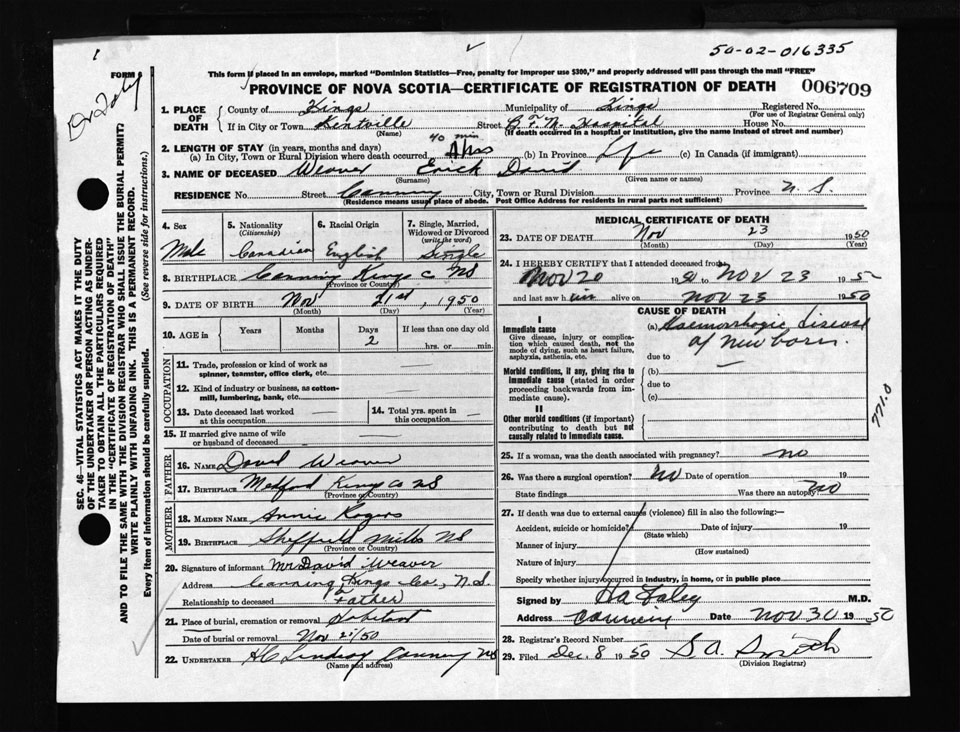 1
50-02-016335
FORM 6
Dr Foley
This form if placed in an envelope, marked "Dominion Statistics—Free, penalty for improper use $300," and properly addressed will pass through the mail "FREE"
PROVINCE OF NOVA SCOTIA—CERTIFICATE OF REGISTRATION OF DEATH 006709
1. PLACE OF DEATH County of Kings Municipality of Kings Registered No.
(For use of Registrar General only)
If in City or Town Kentville Street Hospital House No.
(Name) (If death occurred in a hospital or institution, give name instead of street and number)
2. LENGTH OF STAY (in years, months and days) 40 min
(a) In City, Town or Rural Division where death occurred 4 hrs (b) In Province Life (c) In Canada (if immigrant)
3. NAME OF DECEASED Weaver Erick David
(Surname) (Given name or names)
RESIDENCE No. Street Canning City, Town or Rural Division Province N. S.
(Residence means usual place of abede. Post Office Address for residents in rural parts not sufficient)
4. Sex Male
5. Nationality (Citizenship) Canadian
6. Racial Origin English
7. Single, Married, Widowed or Divorced (write the word) Single
8. BIRTHPLACE Canning Kings Co NS
(Province or Country)
9. DATE OF BIRTH Nov 21st, 1950
(Month) (Day) (Year)
10. AGE in Years Months Days 2 If less than one day old hrs. or min.
OCCUPATION
11. Trade, profession or kind of work as spinner, teamster, office clerk, etc. —
12. Kind of industry or business, as cotton-mill, lumbering, bank, etc. —
13. Date deceased last worked at this occupation —
14. Total yrs. spent in this occupation —
15. If married give name of wife or husband of deceased —
FATHER
16. NAME David Weaver
17. BIRTHPLACE Medford Kings Co NS
(Province or Country)
MOTHER
18. MAIDEN NAME Annie Rogers
19. BIRTHPLACE Sheffield Mills NS
(Province or Country)
20. Signature of informant Mr David Weaver
Address Canning Kings Co, N.S.
Relationship to deceased Father
21. Place of burial, cremation or removal
Date of burial or removal Nov /50
22. UNDERTAKER HC Lindsay Canning NS
(Name and address)
MEDICAL CERTIFICATE OF DEATH
23. DATE OF DEATH Nov 23 1950
(Month) (Day) (Year)
24. I HEREBY CERTIFY that I attended deceased from
Nov 20 1950 to Nov 23 1950
and last saw him alive on Nov 23 1950
CAUSE OF DEATH
I
Immediate cause
Give disease, injury or complication which caused death, not the mode of dying, such as heart failure, asphyxia, asthenia, etc.
(a) Haemorrhagic disease of newborn.
due to —
Morbid conditions, if any, giving rise to immediate cause (stated in order proceeding backwards from immediate cause).
(b)
due to
(c)
II
Other morbid conditions (if important) contributing to death but not causally related to immediate cause.
771.0
25. If a woman, was the death associated with pregnancy? no
26. Was there a surgical operation? No Date of operation 19
State findings Was there an autopsy? no
27. If death was due to external causes (violence) fill in also the following:—
Accident, suicide or homicide? Date of injury 19
(State which)
Manner of injury
(How sustained)
Nature of injury
Specify whether injury occurred in industry, in home, or in public place
Signed by Foley M.D.
Address Canning Date Nov 30 1950
28. Registrar's Record Number
29. Filed Dec. 8 1950 S A. Smith
(Division Registrar)
SEC. 46—VITAL STATISTICS ACT MAKES IT THE DUTY
OF THE UNDERTAKER OR PERSON ACTING AS UNDER-
TAKER TO OBTAIN ALL THE PARTICULARS REQUIRED
IN THE "CERTIFICATE OF REGISTRATION OF DEATH"
AND TO FILE THE SAME WITH THE DIVISION REGISTRAR WHO SHALL ISSUE THE BURIAL PERMIT?
WRITE PLAINLY WITH UNFADING INK. THIS IS A PERMANENT RECORD.
Every item of information should be carefully supplied. (See reverse side for instructions.)